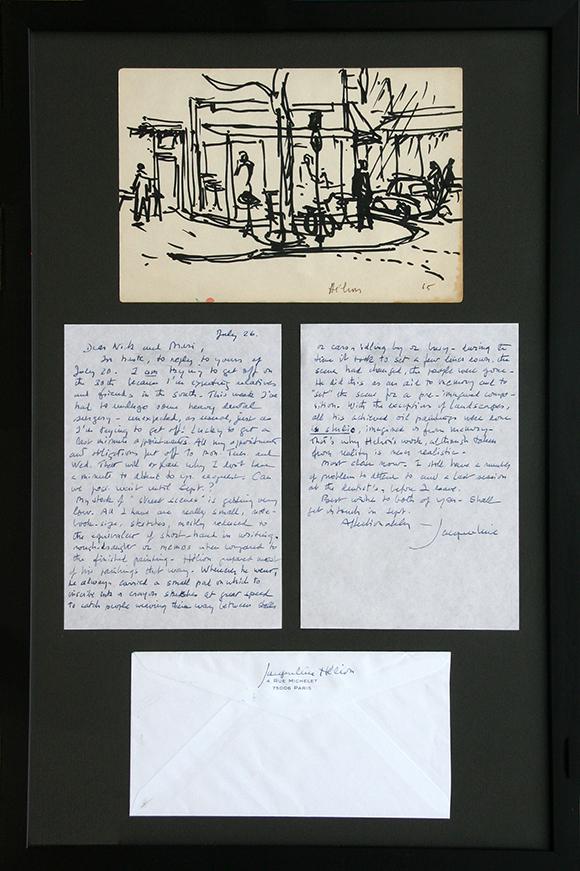 Hélion 65
July 26.
Dear Nick and
In haste, to reply to yours of
July 20. I am trying to get off on
the 30th because I'm expecting relatives
and friends in the south. This week I've
had to undergo some heavy dental
surgery - unexpected, as usual, just as
I'm trying to get off! Lucky to get a
last minute appointment. All my appointments
and obligations put off to Mon. Tues. and
Wed. That will explain why I don't have
a minute to attend to yr. request. Can
we pos. wait until Sept?
My stock of "street scenes" is getting very
low. All I have are really small, note-
book-size, sketches, mostly reduced to
the equivalent of short-hand in writing.
or memos when compared to
the finished painting. Hélion prepared most
of his paintings that way. Wherever he went,
he always carried a small pad on which to
inscribe into a crayon sketches at great speed
to catch people weaving their way between
or cars driving by or busy - during the
time it took to set a few lines down, the
scene had changed, the people were gone.
He did this as an aid to memory and to
"set" the scene for a pre-imagined compo-
sition. With the exception of landscapes,
all his achieved oil paintings were done
in studio, imagined or from memory -
That's why Hélion's work, although taken
from reality is never realistic.
Must close now. I still have a number
of problems to attend to and a last session
at the dentist's, before I leave.
Best wishes to both of you. Shall
get in touch in Sept.
Affectionately -
Jacqueline
Jacqueline Hélion
4 RUE MICHELET
75006 PARIS